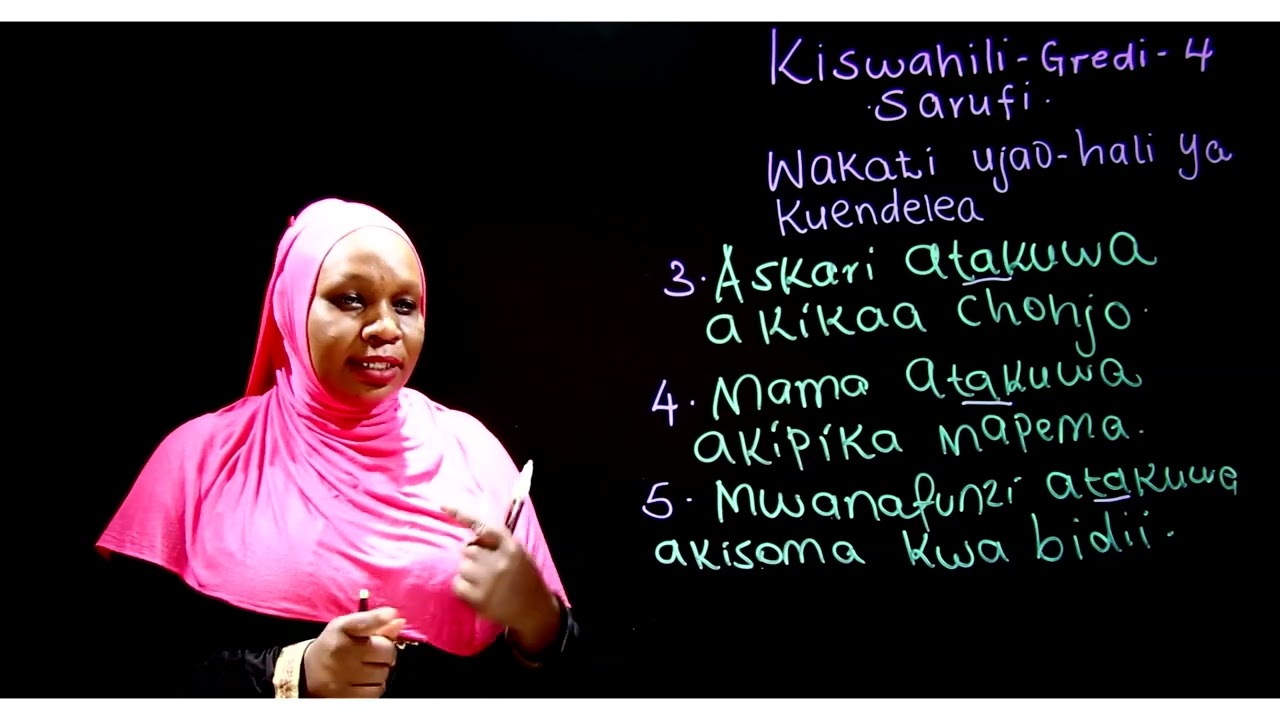 Kiswahili - Gredi - 4
. Sarufi .
Wakati ujao - hali ya
Kuendelea
3. Askari atakuwa
akikaa chonjo.
4. Mama atakuwa
akipika mapema.
5. Mwanafunzi atakuwa
akisoma kwa bidii.